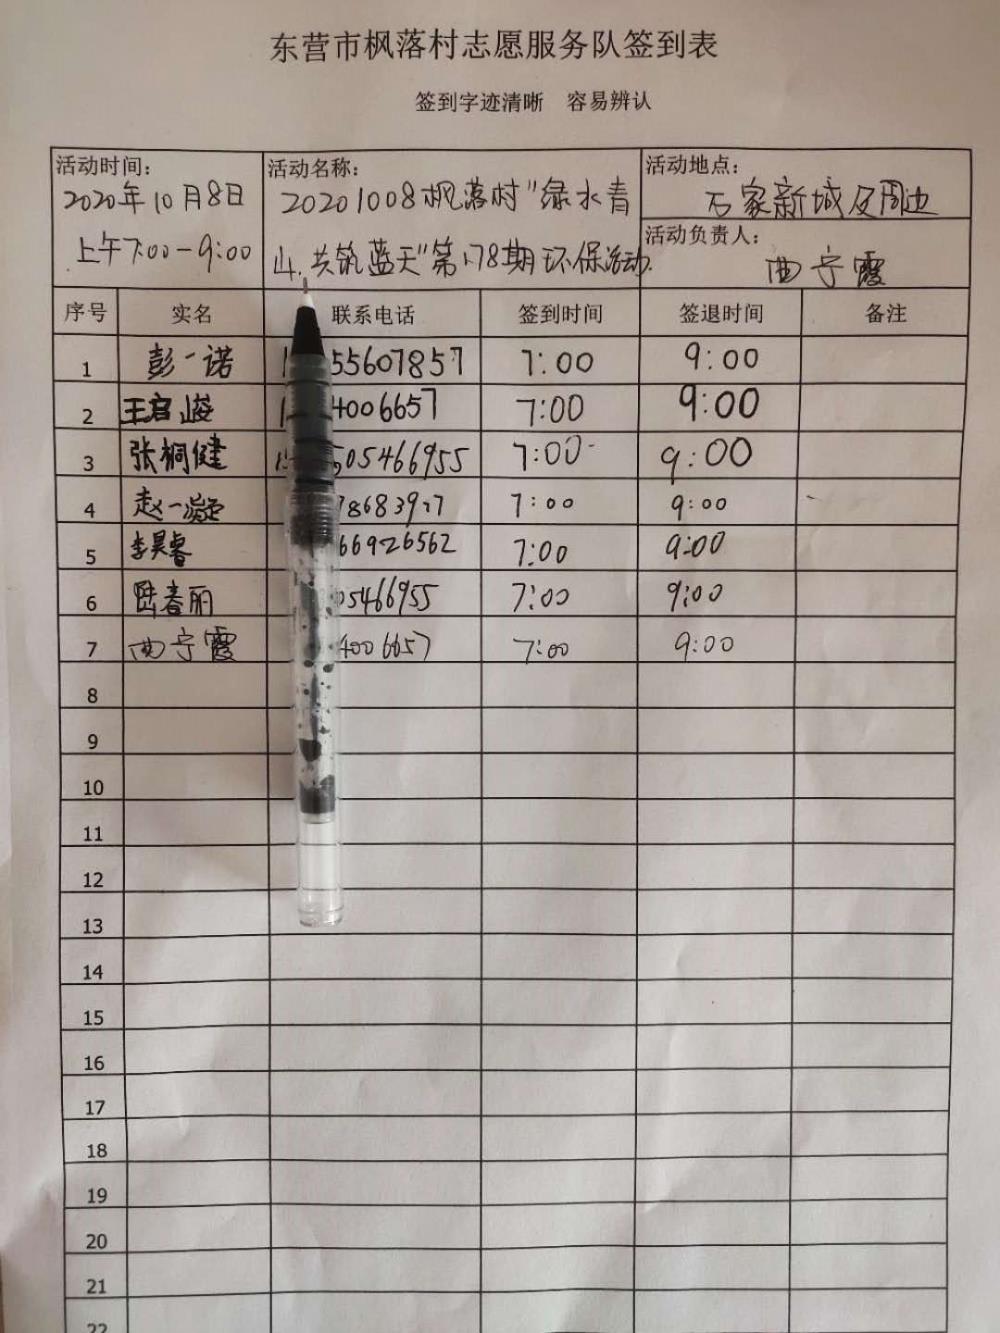 东营市枫落村志愿服务队签到表
签到字迹清晰 容易辨认
活动时间: 2020年10月8日 上午7:00-9:00
活动名称: 20201008枫落村"绿水青山.共筑蓝天"第178期环保活动.
活动地点: 石家新城及周边
活动负责人: 曲宁霞
序号 实名 联系电话 签到时间 签退时间 备注
1 彭一诺 1 55607857 7:00 9:00
2 王启 1 4006657 7:00 9:00
3 张桐健 15 505466955 7:00 9:00
4 赵一凝 7:00 9:00
5 李昊睿 66926562 7:00 9:00
6 陆春丽 05466955 7:00 9:00
7 曲宁霞 4006657 7:00 9:00
8
9
10
11
12
13
14
15
16
17
18
19
20
21
22